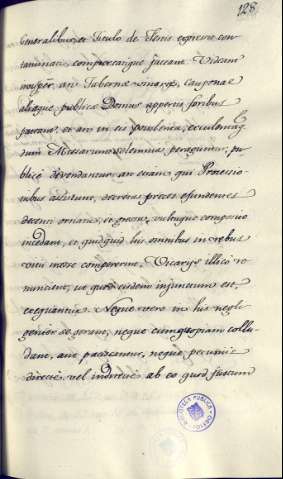 128
Generalibus, et Titulo de Festis expresse con
taminari comperiantque faciant. Videant
nuspter an Tabernæ vinariæ, Cauponæ
aliæque publicæ Domus apertis foribus
pateant et an in eis esculenta, et culen
dum Missarum solemnia peraguntur, pu
blicè devendantur: an etiam qui Processio
nibus assistunt, decoras preces effundentes
decenti ornatu, et gressu, vultuque composito
incedant, et quidquid his omnibus in rebus
vitii inesse compererint, Vicariis illicò re
nuntient, ut quod eisdem injunctum est,
exequantur. Neque vero in his negli
genter se gerant, neque cum quopiam collu
dant, aut paciscantur, neque pecuniæ
directè, vel indirectè ab eo quod festum
BIBLIOTECA PUBLICA